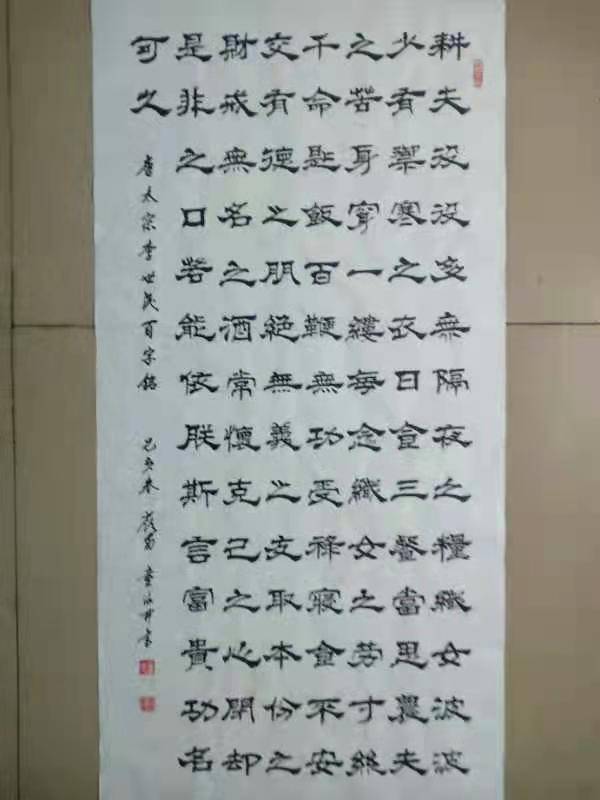 耕夫役役多無隔夜之糧織女波波
少有禦寒之衣日食三餐當思農夫
之苦身穿一縷每念織女之勞寸絲
千命匙飯百鞭無功受祿寢食不安
交有德之朋絕無義之友取本份之
財戒無名之酒常懷克己之心閉却
是非之口若能依朕斯言富貴功名
可久
唐太宗李世民百字銘 己亥春 書